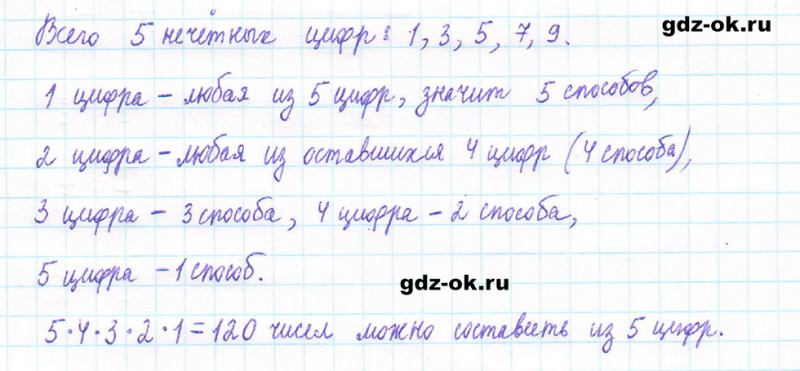 gdz-ok.ru
Всего 5 нечётных цифр: 1, 3, 5, 7, 9.
1 цифра – любая из 5 цифр, значит 5 способов,
2 цифра – любая из оставшихся 4 цифр (4 способа),
3 цифра – 3 способа, 4 цифра – 2 способа,
5 цифра – 1 способ.
gdz-ok.ru
5·4·3·2·1=120 чисел можно составить из 5 цифр.